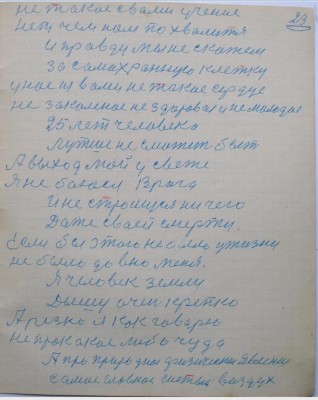 не такое с вами учение
23
Нет чем нам похвалитя
И правды мы не скажем
За самахранную клетку
у нас из вами не такое сердце
не законное не здоровая и не молодое
25 лет человеко
Лутше не сможет быт
А выход мой у свете
Я не боюся Врага
И не строшуся ничего
Даже своей смерти.
Если бы этого не было у жизни
не было давно меня.
Я человек земли
Дышу очен крепко
А резко я как говарю
не про какое любо чуда
А про природное физическои Явление
самое главное чистый воздух